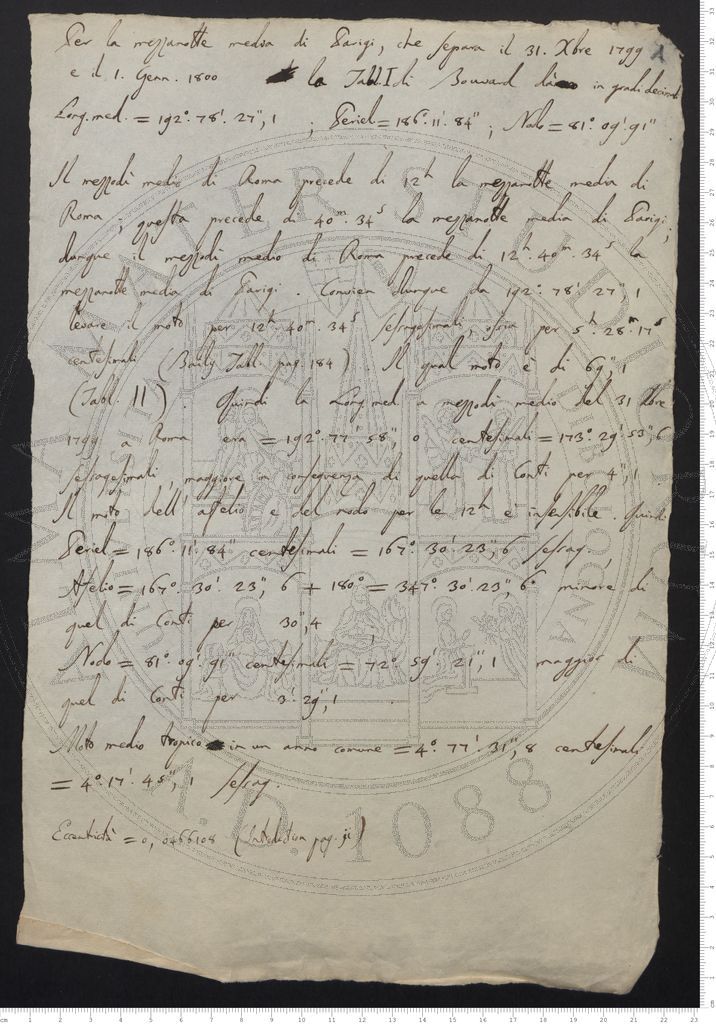 Per la mezzanotte media di Parigi, che separa il 31. Xbre 1799
e il 1. Genn. 1800 la Tabl. I di Bouvard dà in gradi decimali
Long. med. = 192°. 78'. 27", 1 ; Periel = 186°. 11'. 84" ; Nodo = 81°. 09'. 91"
Il mezzodì medio di Roma precede di 12h la mezzanotte media di
Roma ; questa precede di 40m. 34s la mezzanotte media di Parigi ;
dunque il mezzodì medio di Roma precede di 12h. 40m. 34s la
mezzanotte media di Parigi . Convien dunque da 192°. 78'. 27", 1
levare il moto per 12h. 40m. 34s sessagesimali, ossia per 5h. 28m. 17s
centesimali (Baily Tabl. pag. 184) . Il qual moto è di 69", 1
(Tabl. II) . Quindi la Long. med. a mezzodì medio del 31 Xbre
1799 a Roma era = 192°. 77'. 58", 0 centesimali = 173°. 29'. 53", 6
sessagesimali, maggiore in conseguenza di quella di Conti per 4", 1
Il moto dell' afelio e del nodo per le 12h è insensibile . Quindi
Periel = 186°. 11'. 84" centesimali = 167°. 30'. 23", 6 sessag.
Afelio = 167°. 30'. 23", 6 + 180° = 347°. 30'. 23", 6 minore di
quel di Conti per 30", 4
Nodo = 81°. 09'. 91" centesimali = 72°. 59'. 21", 1 maggior di
quel di Conti per 3. 29", 1
Moto medio tropico in un anno comune = 4°. 77'. 31", 8 centesimali
= 4°. 17'. 45", 1 sessag.
Eccentricità = 0, 0466108 (Introduction pag. ii)
ALMA MATER STUDIORUM
A.D. 1088